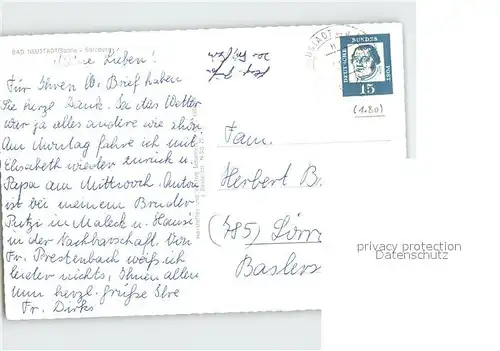 BAD NEUSTADT/Saale - Salzburg
Meine Lieben!
Für Ihren lb. Brief haben
Sie herzl. Dank. Ja das Wetter
war ja alles andere wie schön.
Am Montag fahre ich mit
Elisabeth wieder zurück u.
Papa am Mittwoch. Anton
ist bei meinem Bruder
Putzi in Maleck u. Hansi
in der Nachbarschaft. Von
Fr. Prestenbach weiß ich
leider nichts, Ihnen allen
nun herzl. Grüße Ihre
Fr. Dirks
DEUTSCHE BUNDESPOST
15
(1.80)
Fam.
Herbert B.
(785) Lörr
Baslers
privacy protection
Datenschutz